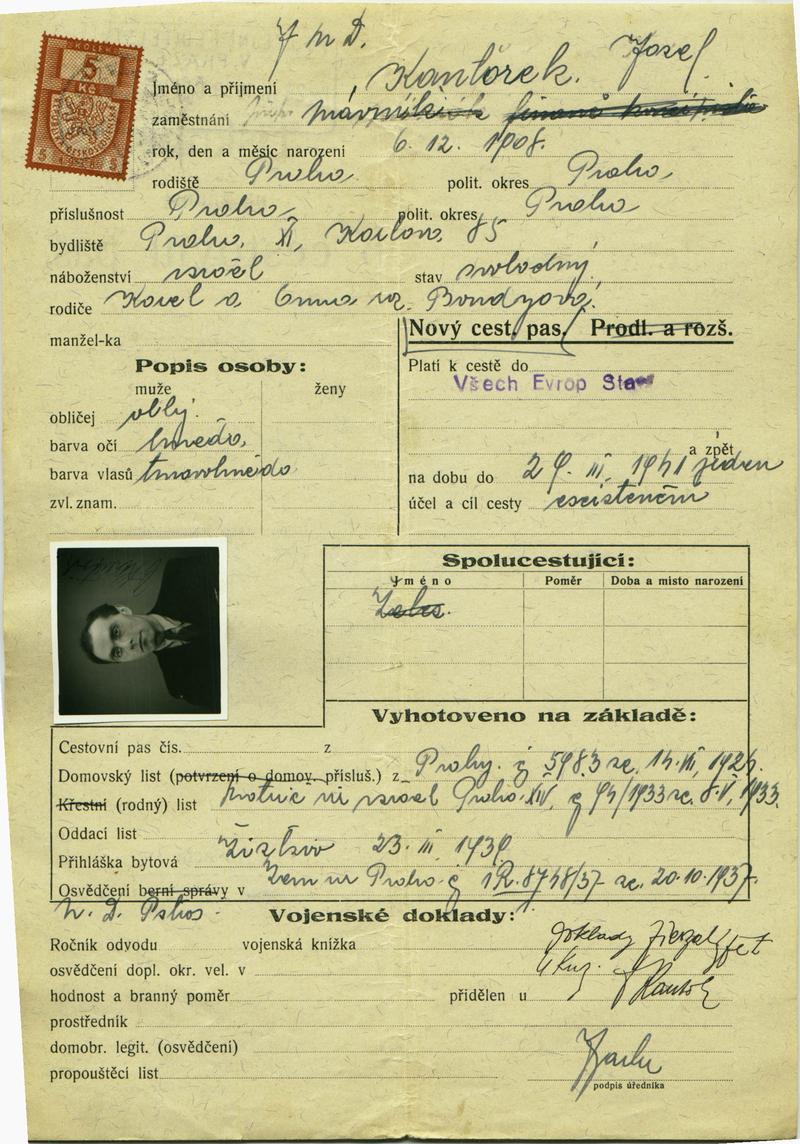 J M D.
KOLEK
5
Kč
Jméno a příjmení Kantŏrek. Josef.
zaměstnání
rok, den a měsíc narození 6. 12. 1908.
rodiště Praha polit. okres Praha
příslušnost Praha polit. okres Praha
bydliště Praha, XI, Karlova 85
náboženství israël stav svobodný
rodiče Karel a Anna roz. Bondyova.
manžel-ka
Nový cest. pas. Prodl. a rozš.
Popis osoby:
muže ženy
obličej oblý.
barva očí hnědá
barva vlasů tmavohnědá
zvl. znam.
Platí k cestě do
Všech Evrop Sta
a zpět
na dobu do 29. III. 1941 jeden
účel a cíl cesty
Spolucestující:
Jméno Poměr Doba a místo narození
Vyhotoveno na základě:
Cestovní pas čís. z
Domovský list (potvrzení o domov. přísluš.) z Prahy. č 5983 ze 14. VII, 1926.
Křestní (rodný) list Matrič úř israel Praha XIV, č 94/1933 ze 8. V, 1933.
Oddací list
Přihláška bytová Žižkov 23. III 1939
Osvědčení berní správy v Praha č 1R. 8748/37 ze 20.10.1937
Vojenské doklady:
Ročník odvodu vojenská knížka
osvědčení dopl. okr. vel. v
hodnost a branný poměr přidělen u
prostředník
domobr. legit. (osvědčení)
propouštěcí list
doklady zpět
podpis úředníka